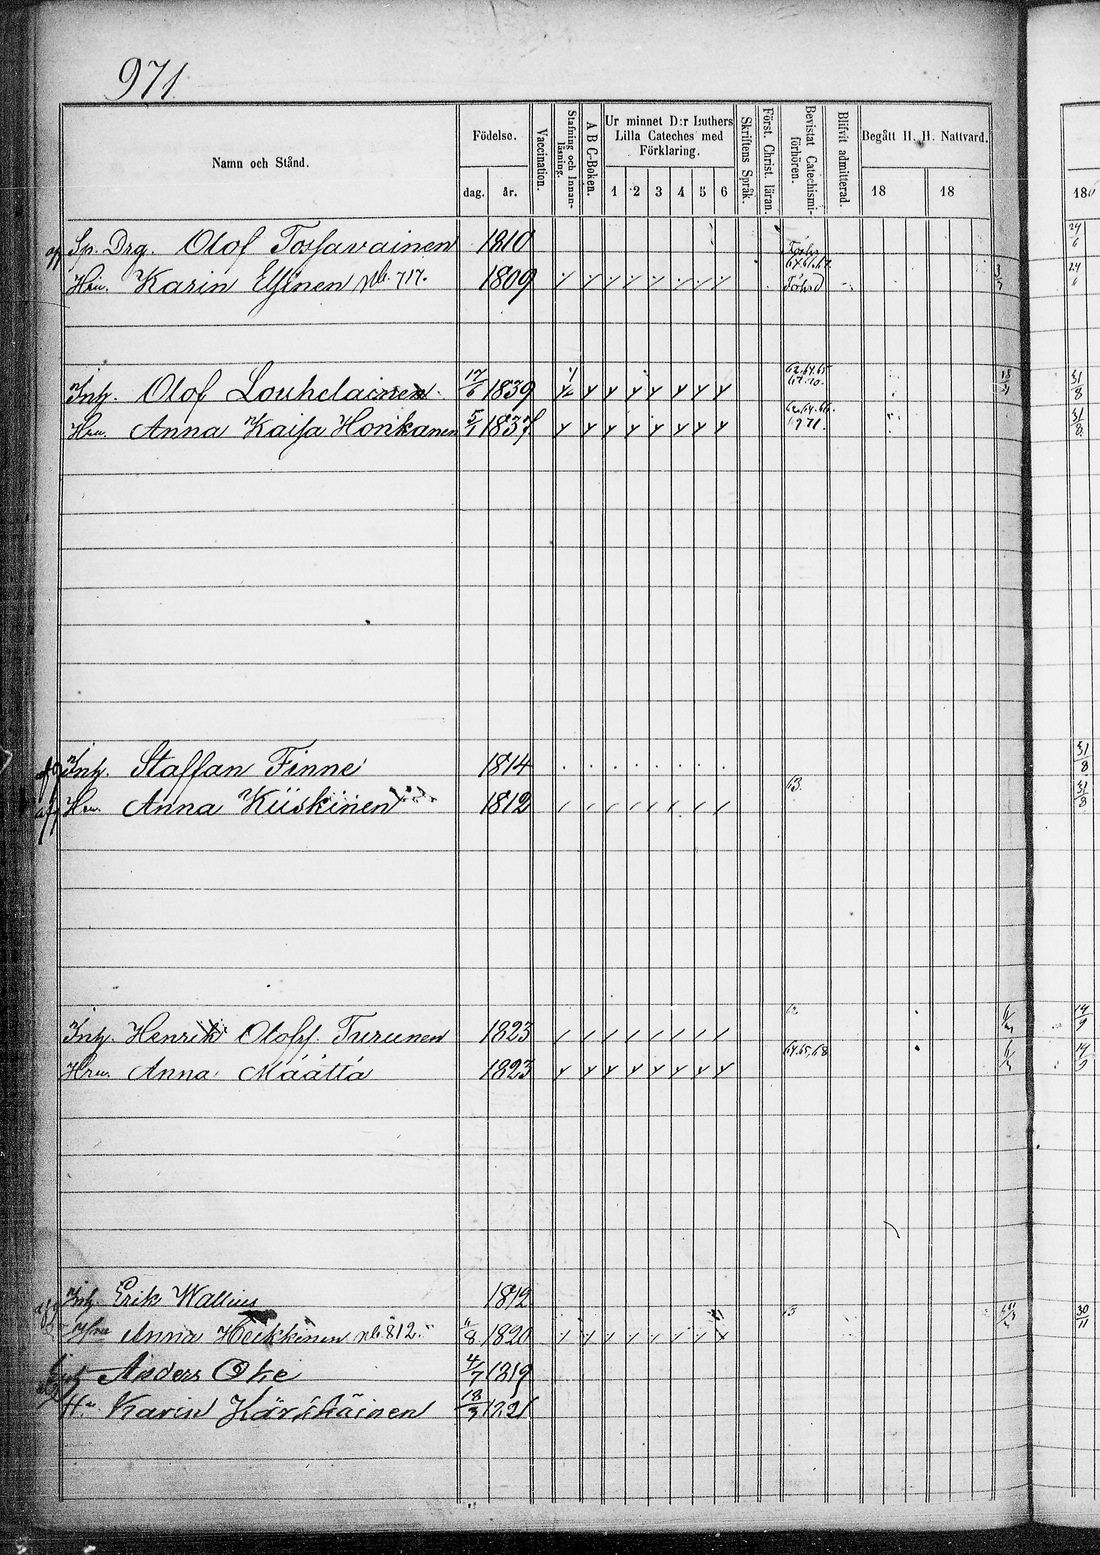 971
Namn och Stånd.
Födelse.
dag. år.
Vaccination.
Stafning och Innanläsning.
A B C-Boken.
Ur minnet D:r Luthers
Lilla Cateches med
Förklaring.
1 2 3 4 5 6
Skriftens Språk.
Först. Christ. läran.
Bevistat Catechismiförhören.
Blifvit admitterad.
Begått H. H. Nattvard.
18 18
186
Sp. Drg. Olof Tossavainen 1810 24/6
Hru. Karin 717. 1809 24/6
Inh. Olof Louhelainen 17/6 1839 31/8
Hru. Anna Kaisa Honkanen 1837 31/8
Inh. Staffan Finne 1814 31/8
Hru Anna Kiiskinen 1812 63. 31/8
Inh. Henrik Olofss. Turunen 1823 14/9
Hru. Anna Määttä 1823 64.65.68 14/9
Inh Erik Wallius 1812
Hru Anna Heikkinen 812. 1820 30/11
Anders Oke 4/7 1819
Hu Karin Kärkkäinen 18/3 1221